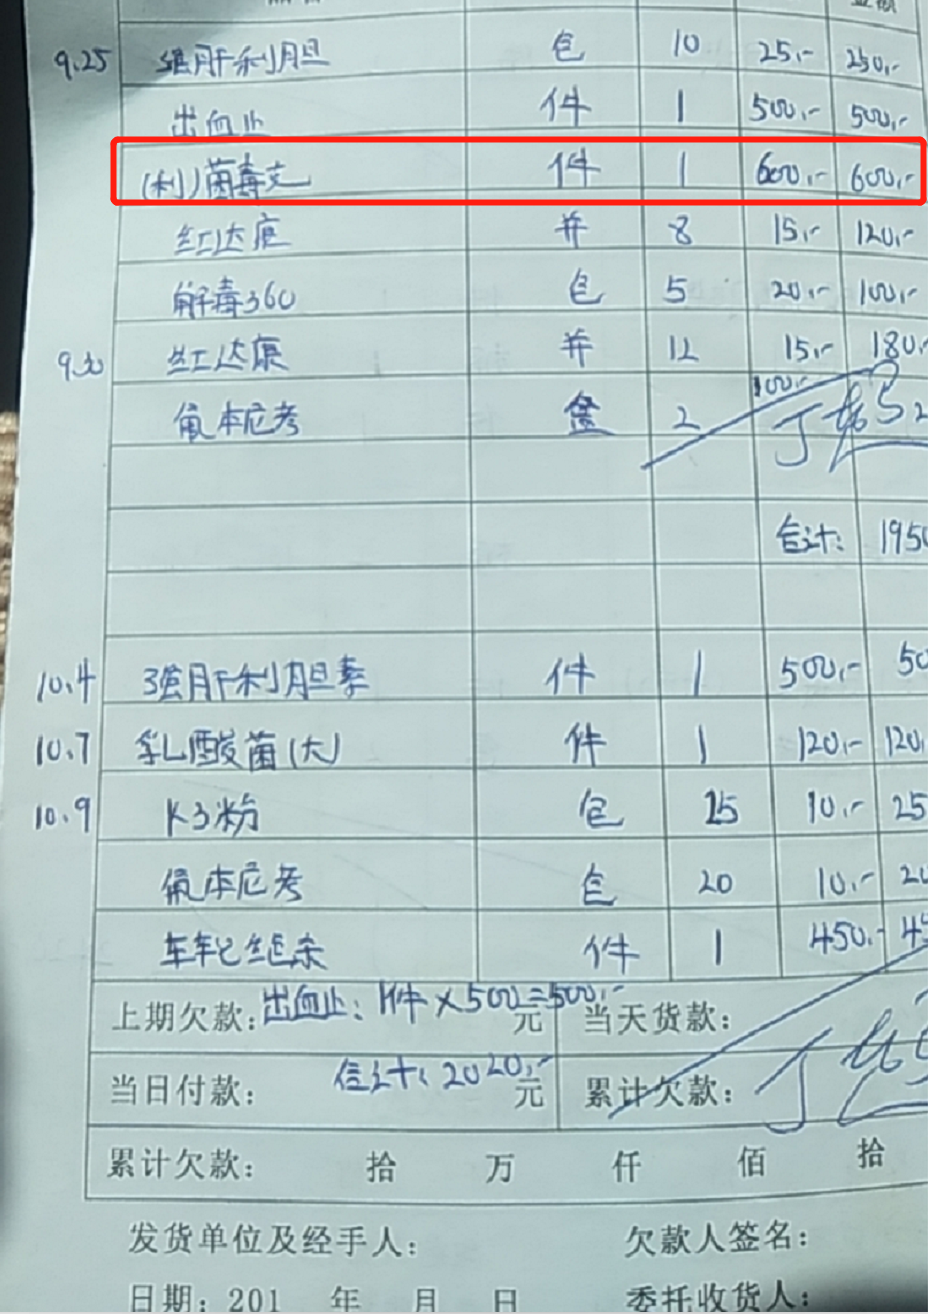 9.25 强肝利胆 包 10 25.- 250.-
出血止 件 1 500.- 500.-
(利)菌毒克 件 1 600.- 600.-
红达康 并 8 15.- 120.-
解毒360 包 5 20.- 100.-
9.30 红达康 并 12 15.- 180.-
氟本尼考 盒 2 100.-
合计: 195
10.4 强肝利胆素 件 1 500.- 50
10.7 乳酸菌(大) 件 1 120.- 120.
10.9 K3粉 包 25 10.- 25
氟本尼考 包 20 10.- 20
车轮绝杀 件 1 450.- 45
上期欠款: 出血止: 1件×500=500.- 元 当天货款:
当日付款: 合计: 2020.- 元 累计欠款:
累计欠款: 拾 万 仟 佰 拾
发货单位及经手人: 欠款人签名:
日期: 201 年 月 日 委托收货人: